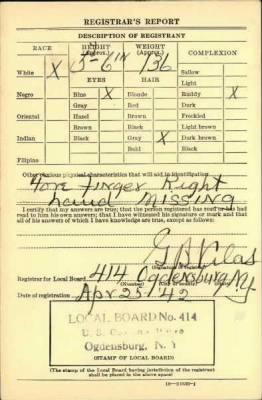 REGISTRAR'S REPORT
DESCRIPTION OF REGISTRANT
RACE HEIGHT (Approx.) WEIGHT (Approx.) COMPLEXION
White X 5-6 in 136 Sallow
EYES HAIR Light
Negro Blue X Blonde Ruddy X
Gray Red Dark
Oriental Hazel Brown Freckled
Brown Black Light brown
Indian Black Gray X Dark brown
Bald Black
Filipino
Other obvious physical characteristics that will aid in identification
Fore finger Right
hand MISSING
I certify that my answers are true; that the person registered has read or has had
read to him his own answers; that I have witnessed his signature or mark and that
all of his answers of which I have knowledge are true, except as follows:
G B Vilas
(Signature of registrar)
Registrar for Local Board 414 Ogdensburg N.Y.
(Number)
Date of registration Apr 25 '42
LOCAL BOARD No. 414
Ogdensburg, N. Y
(STAMP OF LOCAL BOARD)
(The stamp of the Local Board having jurisdiction of the registrant
shall be placed in the above space)